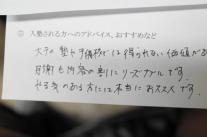 ② 入塾される方へのアドバイス、おすすめなど
大手の塾や予備校では得られない価値がある
月謝も内容の割にリーズナブルです。
やる気のある方には本当におススメです。